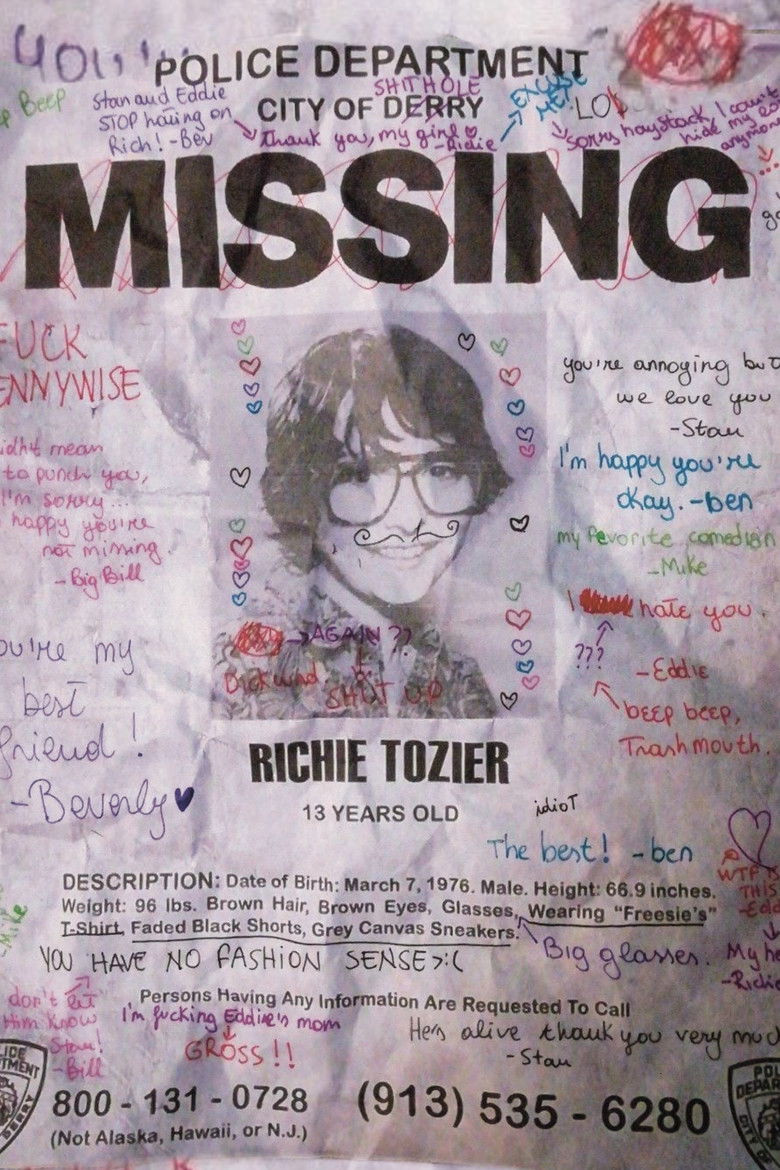 you're
POLICE DEPARTMENT
SHITHOLE
CITY OF DERRY
Beep
Stan and Eddie
STOP having on
Rich! -Bev
Thank you, my girl ♡
-Ridie
EXCUSE
ME!
LO
Sorry haystack, I can't
hide my
anymore
MISSING
FUCK
ENNYWISE
idnit mean
to punch you,
I'm sorry...
happy you're
not mining.
-Big Bill
you're my
best
friend!
-Beverly♥
you're annoying but
we love you
-Stan
I'm happy you're
okay. -ben
my Fevorite comedian
-Mike
I hate you
???
-Eddie
beep beep,
Trashmouth.
AGAIN ??
Dickwad
SHUT UP
RICHIE TOZIER
13 YEARS OLD
idioT
The best! -ben
DESCRIPTION: Date of Birth: March 7, 1976. Male. Height: 66.9 inches.
Weight: 96 lbs. Brown Hair, Brown Eyes, Glasses, Wearing "Freesie's"
T-Shirt, Faded Black Shorts, Grey Canvas Sneakers.
WTF IS
THIS
-Edd
My he
-Ridie
-Mike
YOU HAVE NO FASHION SENSE>:(
Big glasses.
Persons Having Any Information Are Requested To Call
don't let
Him know
Stan!
-Bill
I'm fucking Eddie's mom
GROSS!!
He's alive thank you very muc
-Stan
800 - 131 - 0728
(913) 535 - 6280
(Not Alaska, Hawaii, or N.J.)
POL
DEPAR
CITY OF